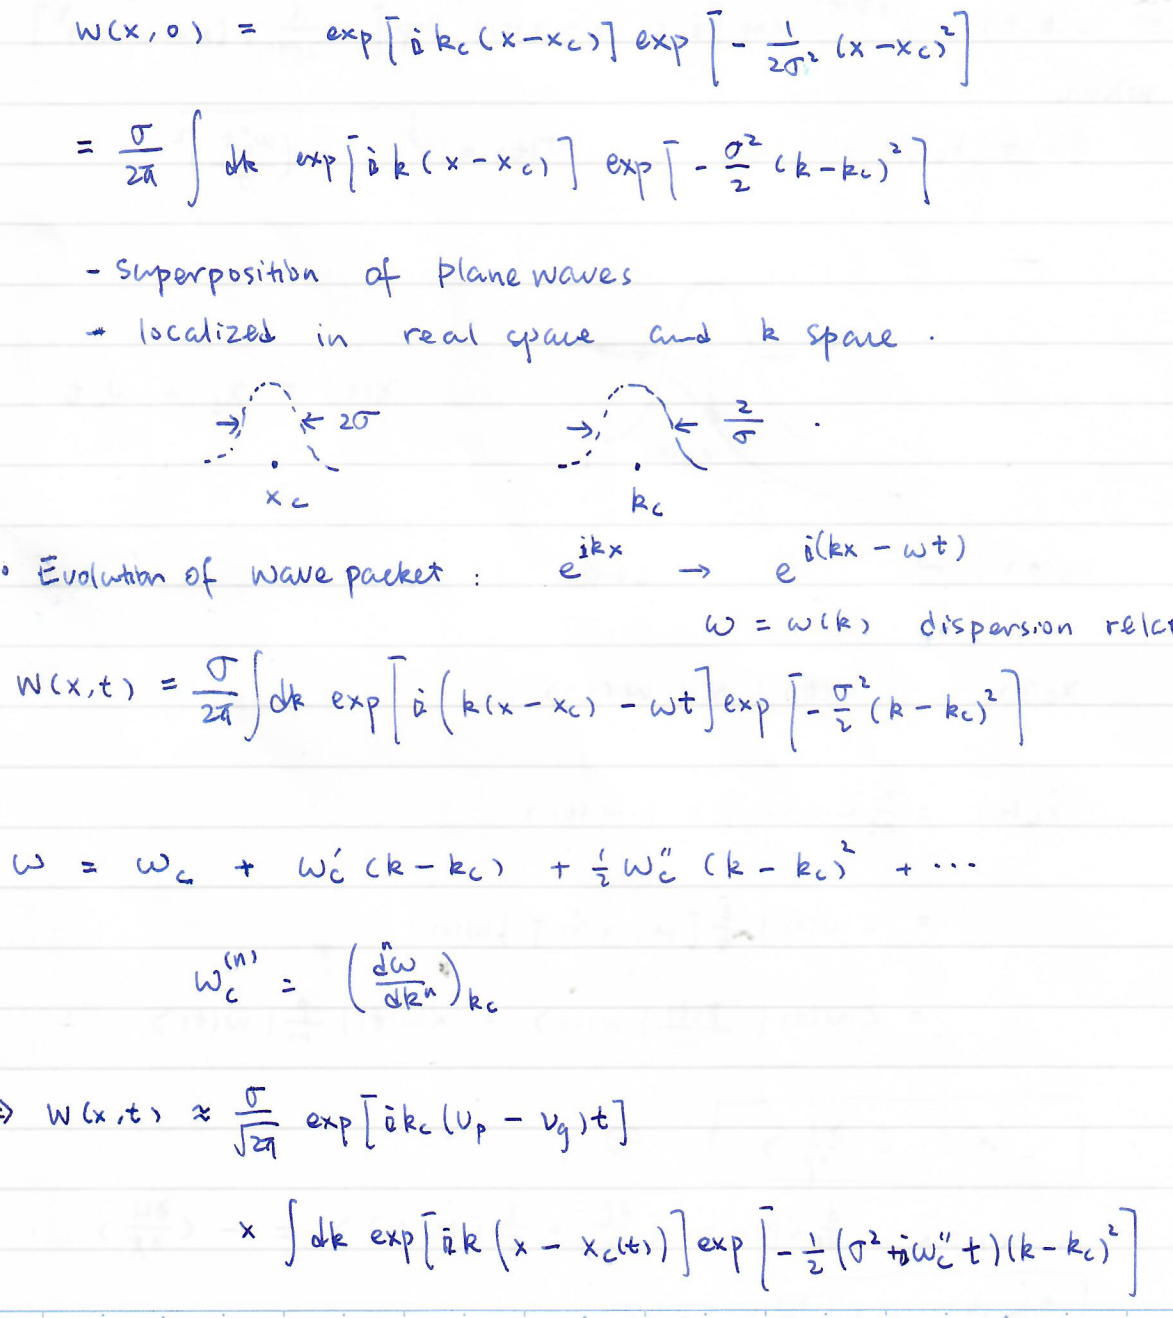 W(x,0) = exp[i k_c (x-x_c)] exp[- 1/2σ² (x-x_c)²]
= σ/2π ∫ dk exp[i k (x - x_c)] exp[- σ²/2 (k-k_c)²]
- Superposition of plane waves
- localized in real space and k space.
→ ← 2σ → ← 2/σ .
x_c k_c
• Evolution of wave packet : e^{ikx} → e^{i(kx - ωt)}
ω = ω(k) dispersion relat
W(x,t) = σ/2π ∫ dk exp[i (k(x-x_c) - ωt] exp[- σ²/2 (k - k_c)²]
ω = ω_c + ω_c' (k-k_c) + 1/2 ω_c'' (k - k_c)² + ...
ω_c^{(n)} = (d^nω/dk^n)_{k_c}
⇒ W(x,t) ≈ σ/√2π exp[i k_c (v_p - v_g)t]
× ∫ dk exp[i k (x - x_c(t))] exp[- 1/2 (σ² + iω_c'' t)(k-k_c)²]